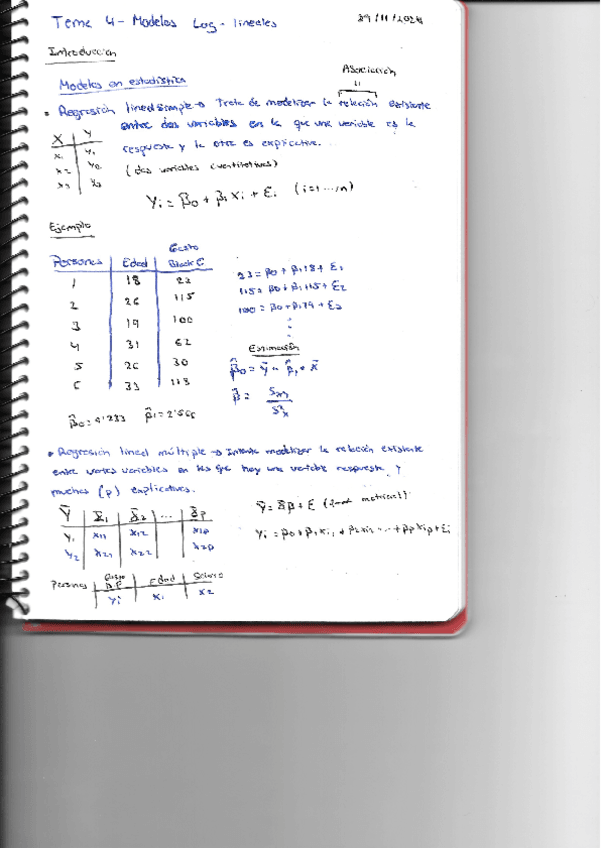 Tema 4 - Modelos Log-lineales 29/11/2024
Introducción
Modelos en estadística
Asociación
• Regresión lineal simple → Trata de modelizar la relación existente
entre dos variables en la que una variable es la
respuesta y la otra es explicativa.
(dos variables cuantitativas)
X Y
x1 y1
x2 y2
x3 y3
Yi = β0 + β1 xi + εi (i=1...,n)
Ejemplo
Personas Edad Gasto Black F
1 18 23
2 26 115
3 19 100
4 31 62
5 26 30
6 33 113
23 = β0 + β1 18 + ε1
115 = β0 + β1 115 + ε2
100 = β0 + β1 19 + ε3
Estimación
β̂0 = ȳ - β̂1 · x̄
β̂ = Sxy / S²x
β̂0 = 4'233 β̂1 = 2'566
• Regresión lineal múltiple → Intenta modelizar la relación existente
entre varias variables en las que hay una variable respuesta y
muchas (p) explicativas.
Y X1 X2 ... Xp
y1 x11 x12 x1p
y2 x21 x22 x2p
Yi = β0 + β1 xi1 + β2 xi2 ... + βp xip + εi
Personas Gasto B.F Edad Salario
yi x1 x2